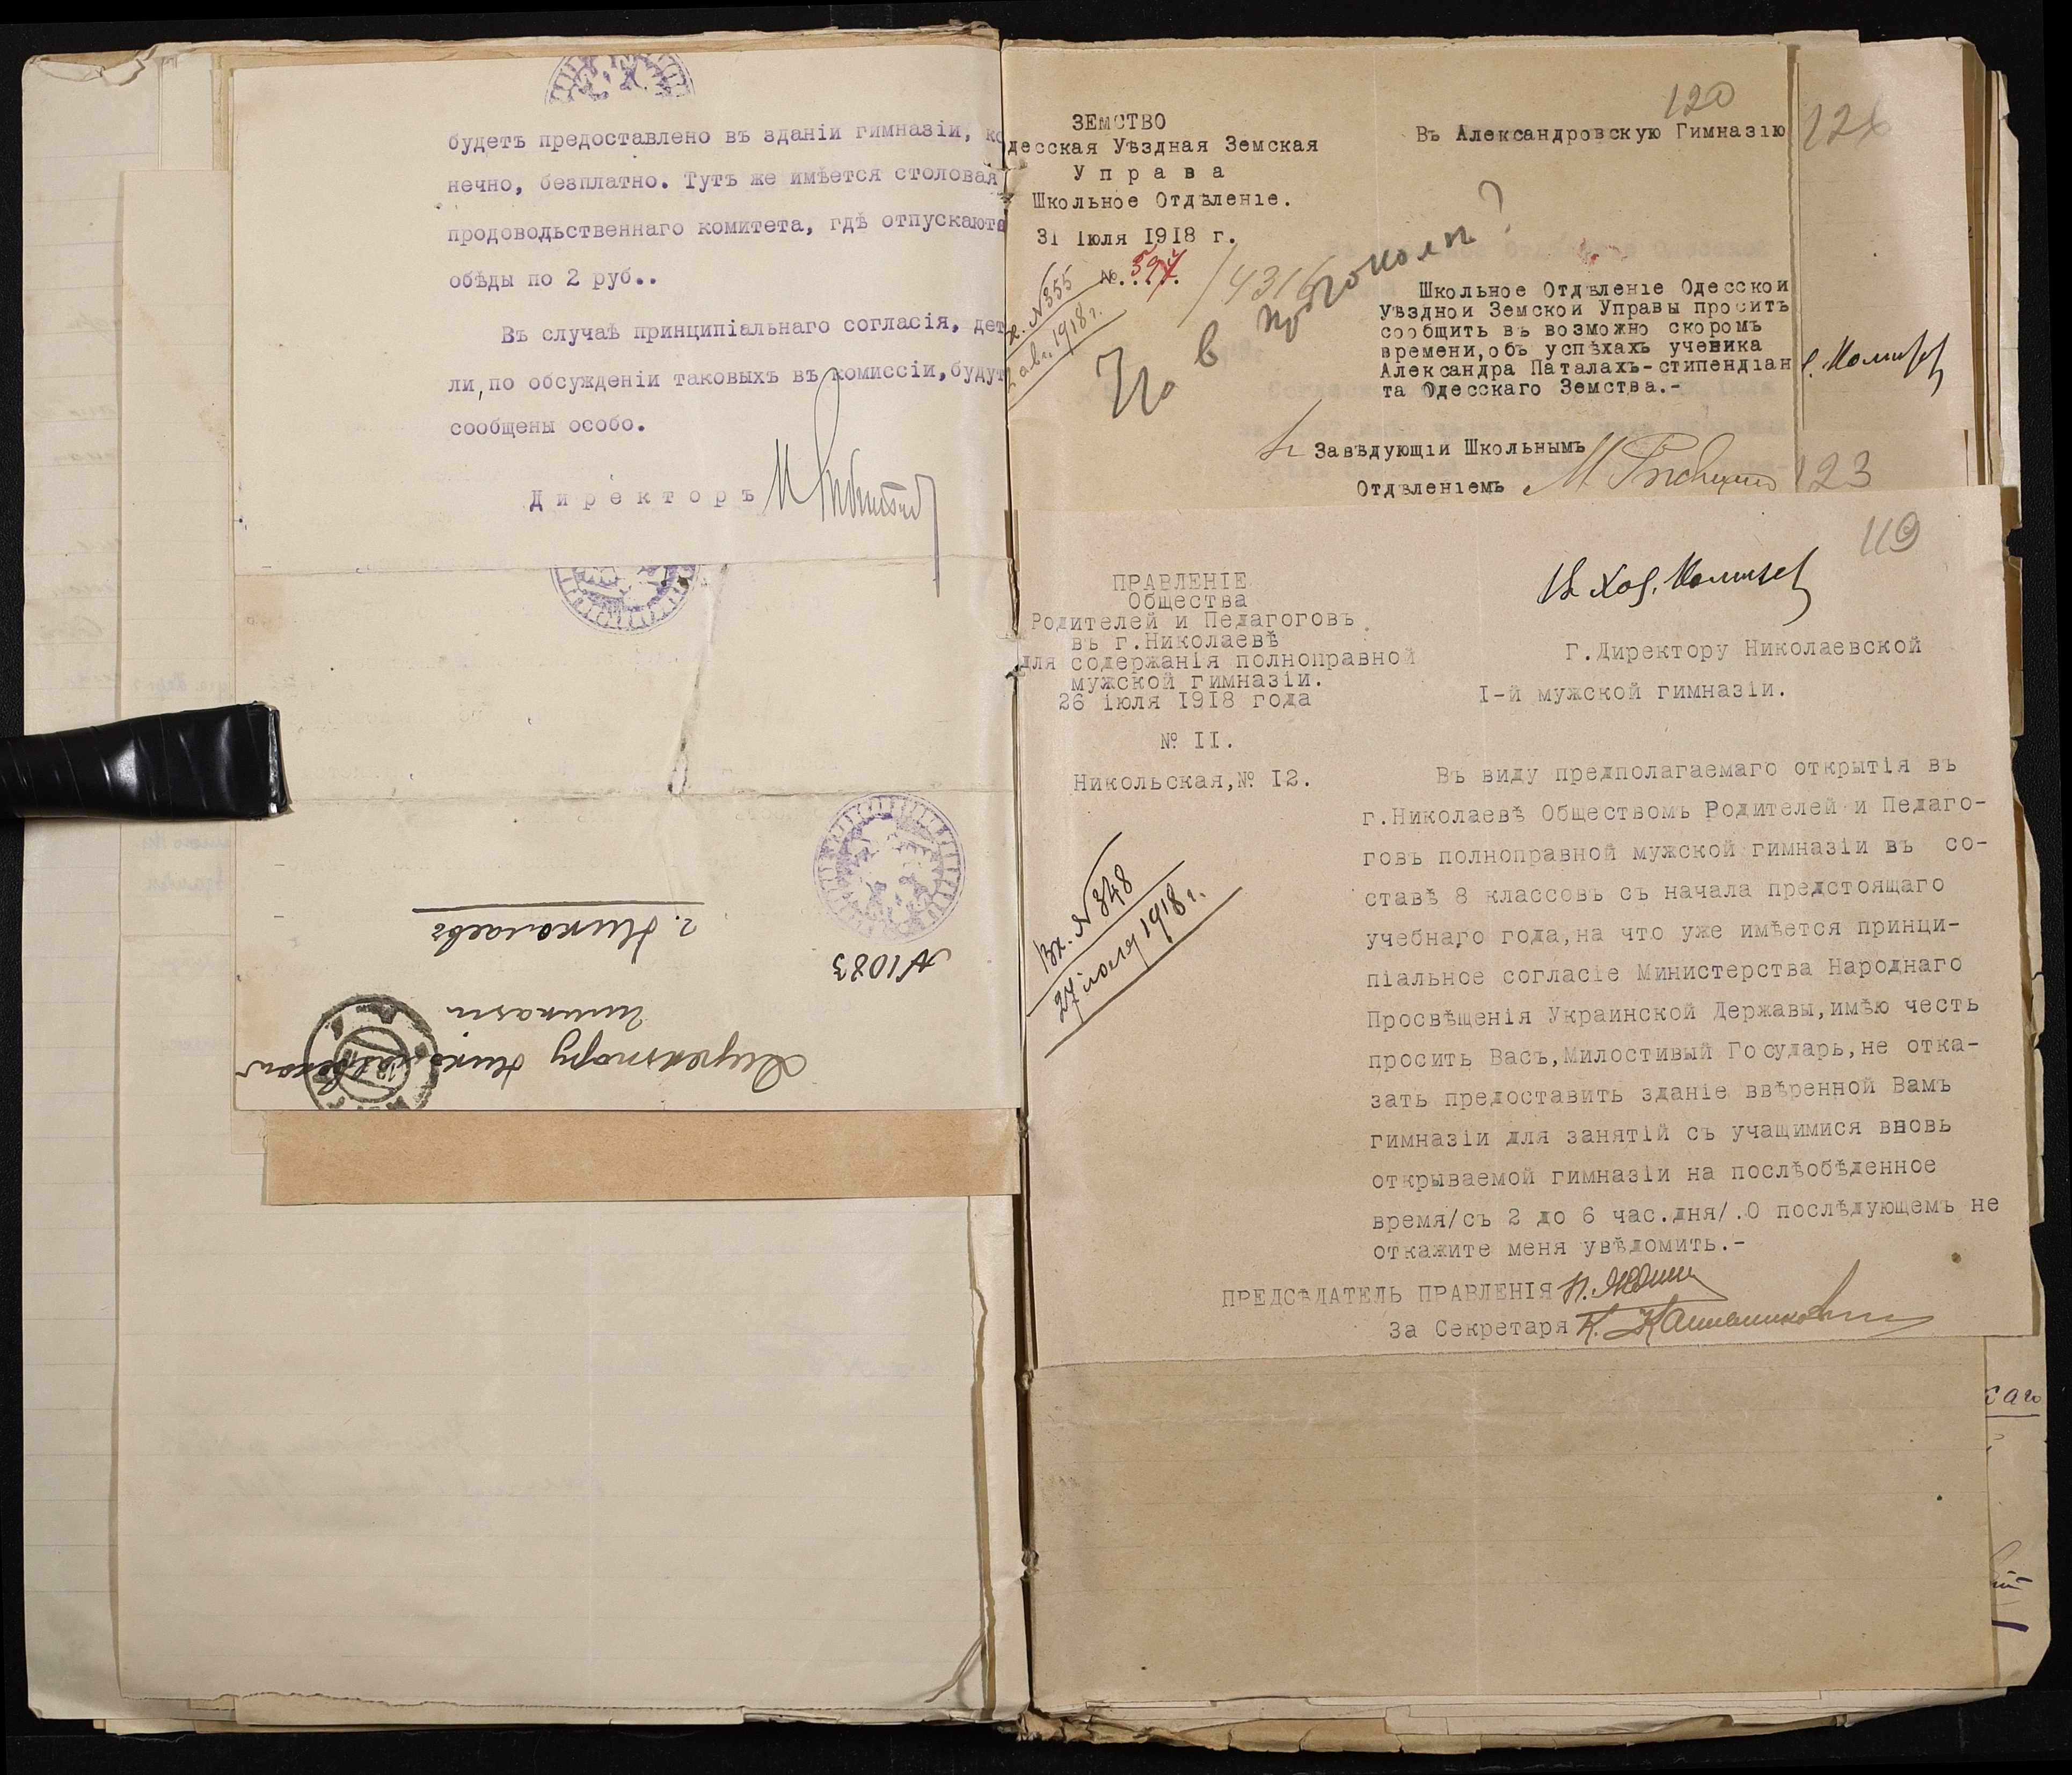 будетъ предоставлено въ зданіи гимназіи, ко
нечно, безплатно. Тутъ же имѣется столовая
продовольственнаго комитета, гдѣ отпускаютс
обѣды по 2 руб..
Въ случаѣ принципіальнаго согласія, дет
ли, по обсужденіи таковыхъ въ комиссіи, будут
сообщены особо.
Директоръ
г. Николаевъ
№1083
гимназіи
Директору Николаевской
120
ЗЕМСТВО
десская Уѣздная Земская
Управа
Школьное Отдѣленіе.
31 Іюля 1918 г.
№. 597.
/4316
х. №355
2 авг. 1918 г.
Въ Александровскую Гимназію
Что в протокол?
Школьное Отдѣленіе Одесской
Уѣздной Земской Управы проситъ
сообщить въ возможно скоромъ
времени, объ успѣхахъ ученика
Александра Паталахъ-стипендіан
та Одесскаго Земства.-
Завѣдующій Школьнымъ
Отдѣленіемъ
123
119
ПРАВЛЕНІЕ
Общества
Родителей и Педагоговъ
въ г.Николаевѣ
для содержанія полноправной
мужской гимназіи.
26 іюля 1918 года
№ II.
Никольская, № 12.
Вх. №348
27 іюля 1918 г.
Г.Директору Николаевской
I-й мужской гимназіи.
Въ виду предполагаемаго открытія въ
г.Николаевѣ Обществомъ Родителей и Педаго-
говъ полноправной мужской гимназіи въ со-
ставѣ 8 классовъ съ начала предстоящаго
учебнаго года, на что уже имѣется принци-
піальное согласіе Министерства Народнаго
Просвѣщенія Украинской Державы, имѣю честь
просить Васъ, Милостивый Государь, не отка-
зать предоставить зданіе ввѣренной Вамъ
гимназіи для занятій съ учащимися вновь
открываемой гимназіи на послѣобѣденное
время/съ 2 до 6 час.дня/.О послѣдующемъ не
откажите меня увѣдомить.-
ПРЕДСѢДАТЕЛЬ ПРАВЛЕНІЯ
За Секретаря